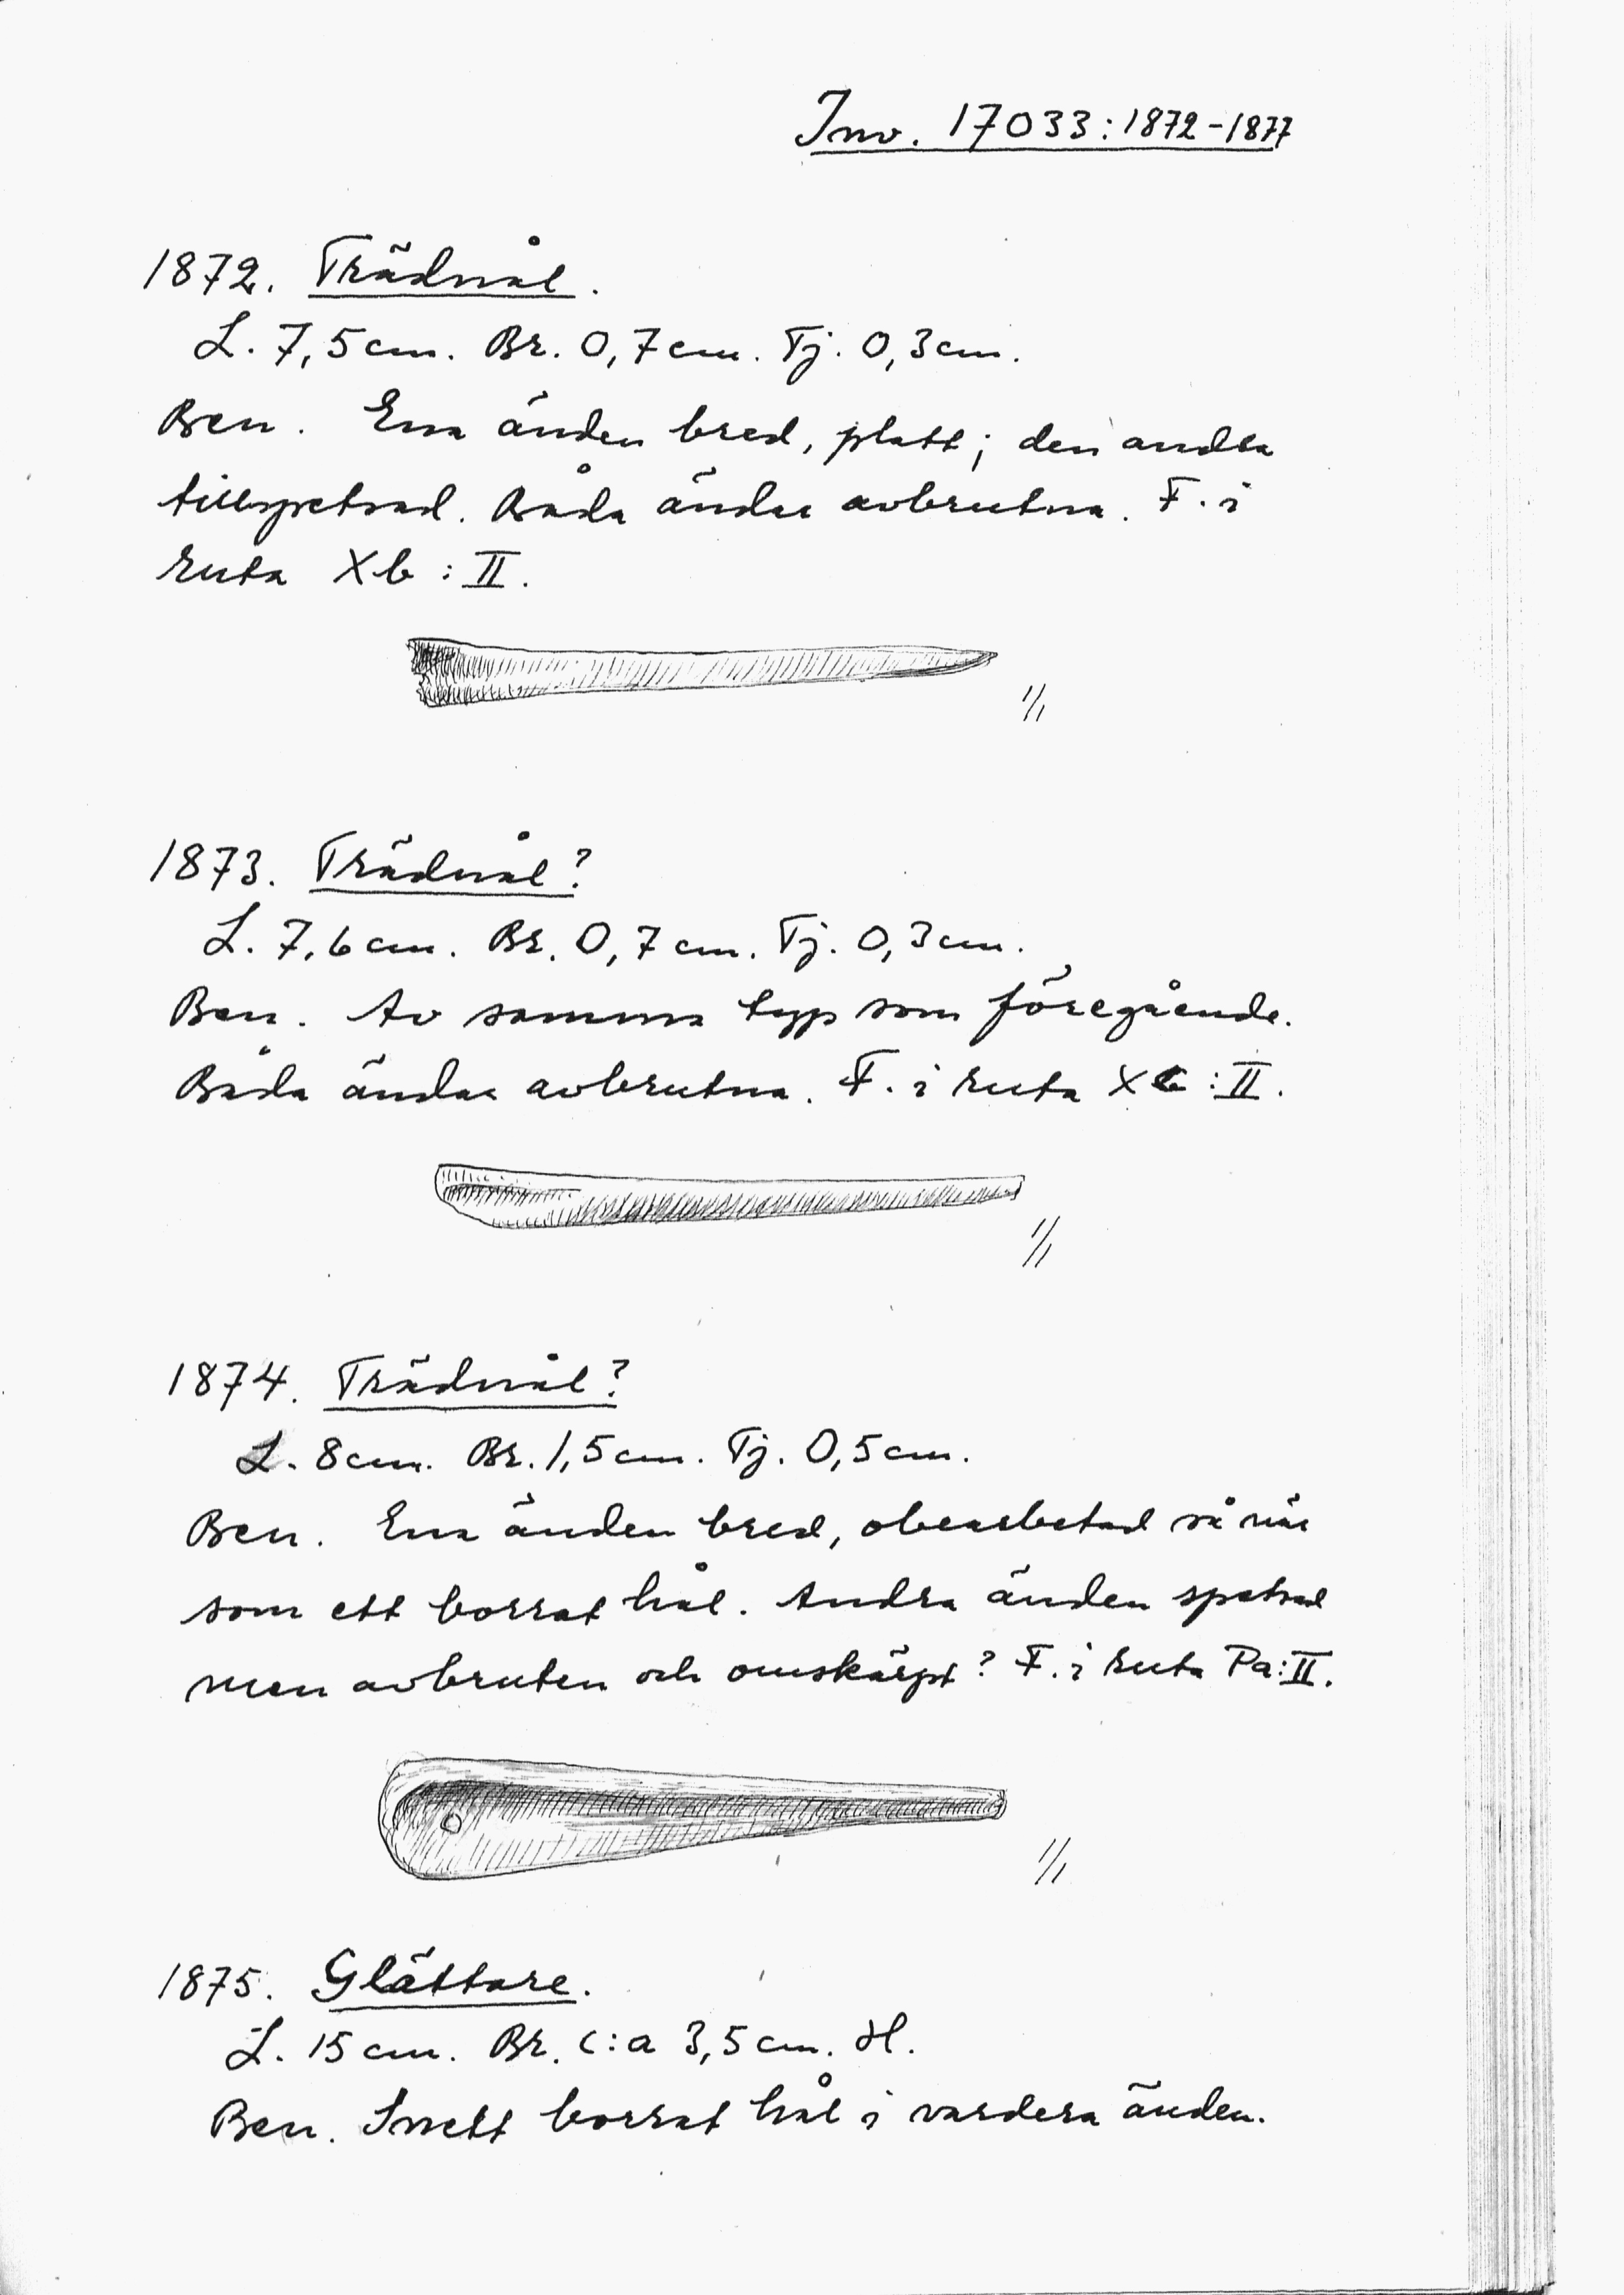 Inv. 17033:1872-1877
1872. Trädnål.
L. 7,5cm. Br. 0,7cm. Tj. 0,3cm.
Ben. Ena änden bred, platt; den andra
tillspetsad. Båda ändar avbrutna. F. i
ruta Xb : II.
1/1
1873. Trädnål?
L. 7,6cm. Br. 0,7cm. Tj. 0,3cm.
Ben. Av samma typ som föregående.
Båda ändar avbrutna. F. i ruta :II.
1/1
1874. Trädnål?
L. 8cm. Br. 1,5cm. Tj. 0,5cm.
Ben. Ena änden bred, obearbetad så när
som ett borrat hål. Andra änden spetsad
men avbruten och omskärpt? F. i ruta Pa:II.
1/1
1875. Glättare.
L. 15cm. Br. c:a 3,5cm. H.
Ben. Snett borrat hål i vardera änden.